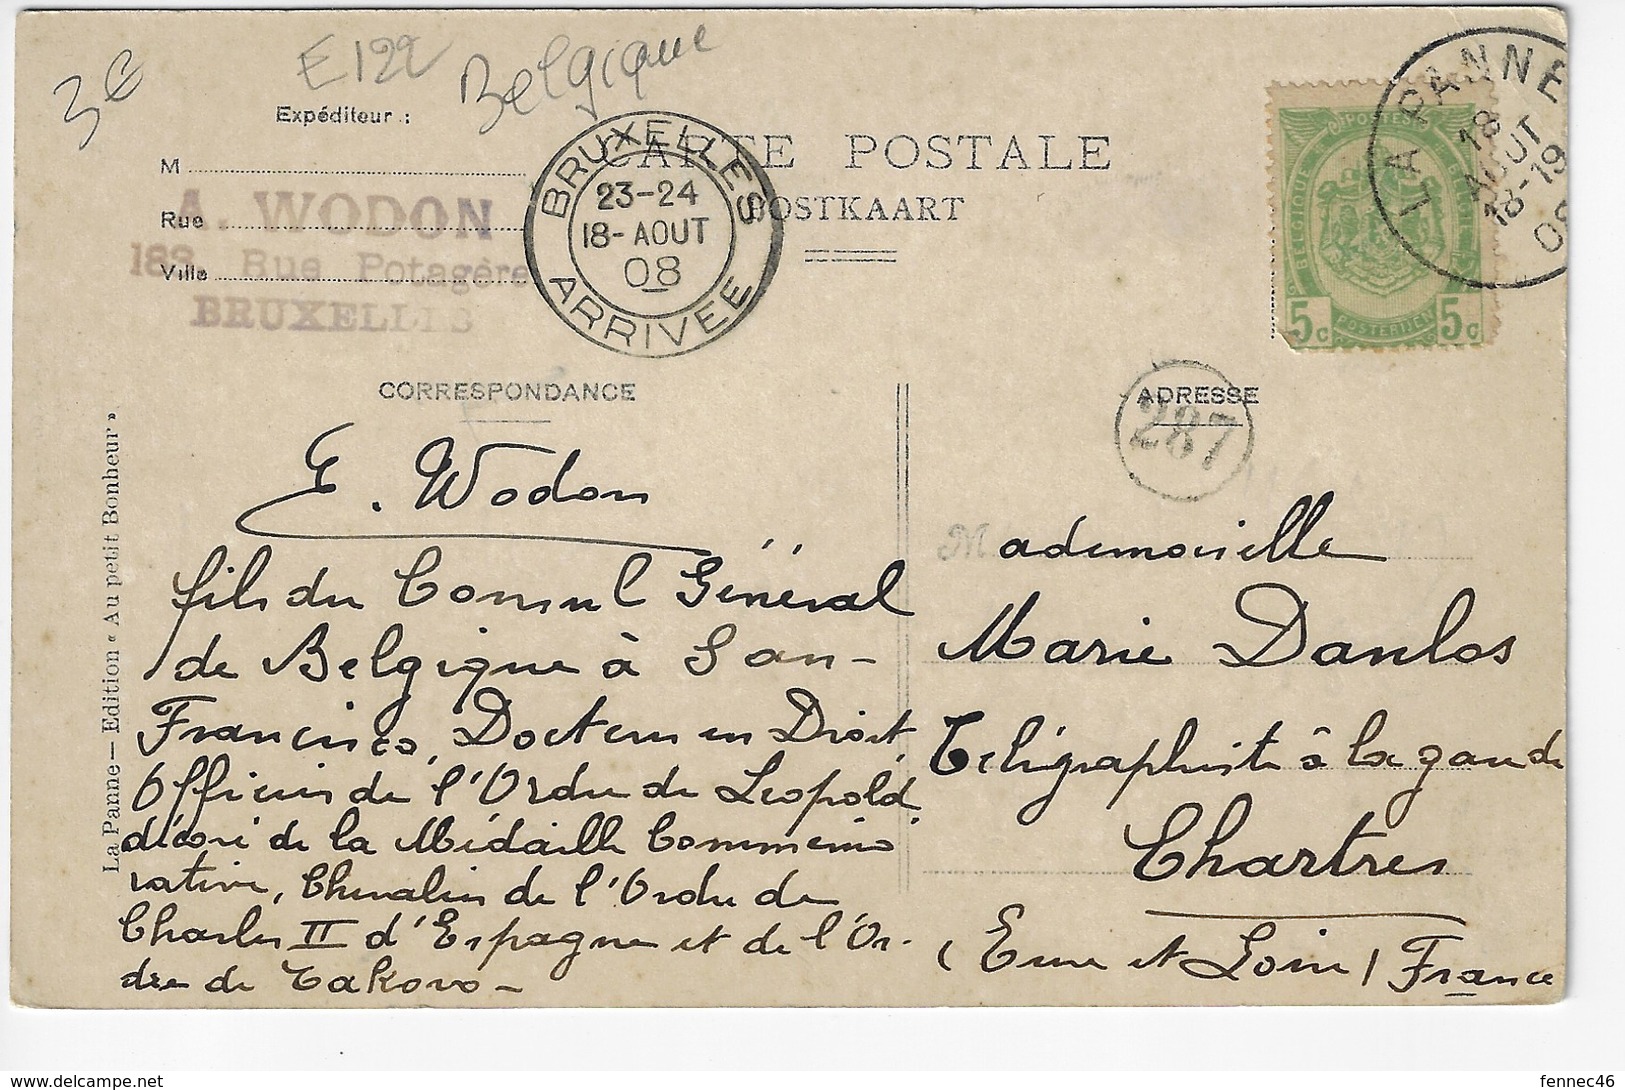 3€
E122
Belgique
Expéditeur :
M
Rue
Ville
A. WODON
188, Rue Potagère
BRUXELLES
BRUXELLES
23-24
18-AOUT
08
ARRIVEE
CARTE POSTALE
POSTKAART
LA PANNE
18
AOUT
18-19
08
POSTES
BELGIQUE
BELGIE
5c
POSTERIJEN
5c
CORRESPONDANCE
ADRESSE
287
La Panne — Edition « Au petit Bonheur »
E. Wodon
fils du Consul Général
de Belgique à San-
Francisco, Docteur en Droit,
Officier de l'Ordre de Leopold
décoré de la Médaille Commémo
rative, Chevalier de l'Ordre de
Charles II d'Espagne et de l'Or-
dre de Takovo -
Mademoiselle
Marie Danlos
Télégraphiste à la gare de
Chartres
(Eure et Loir) France
fennec46